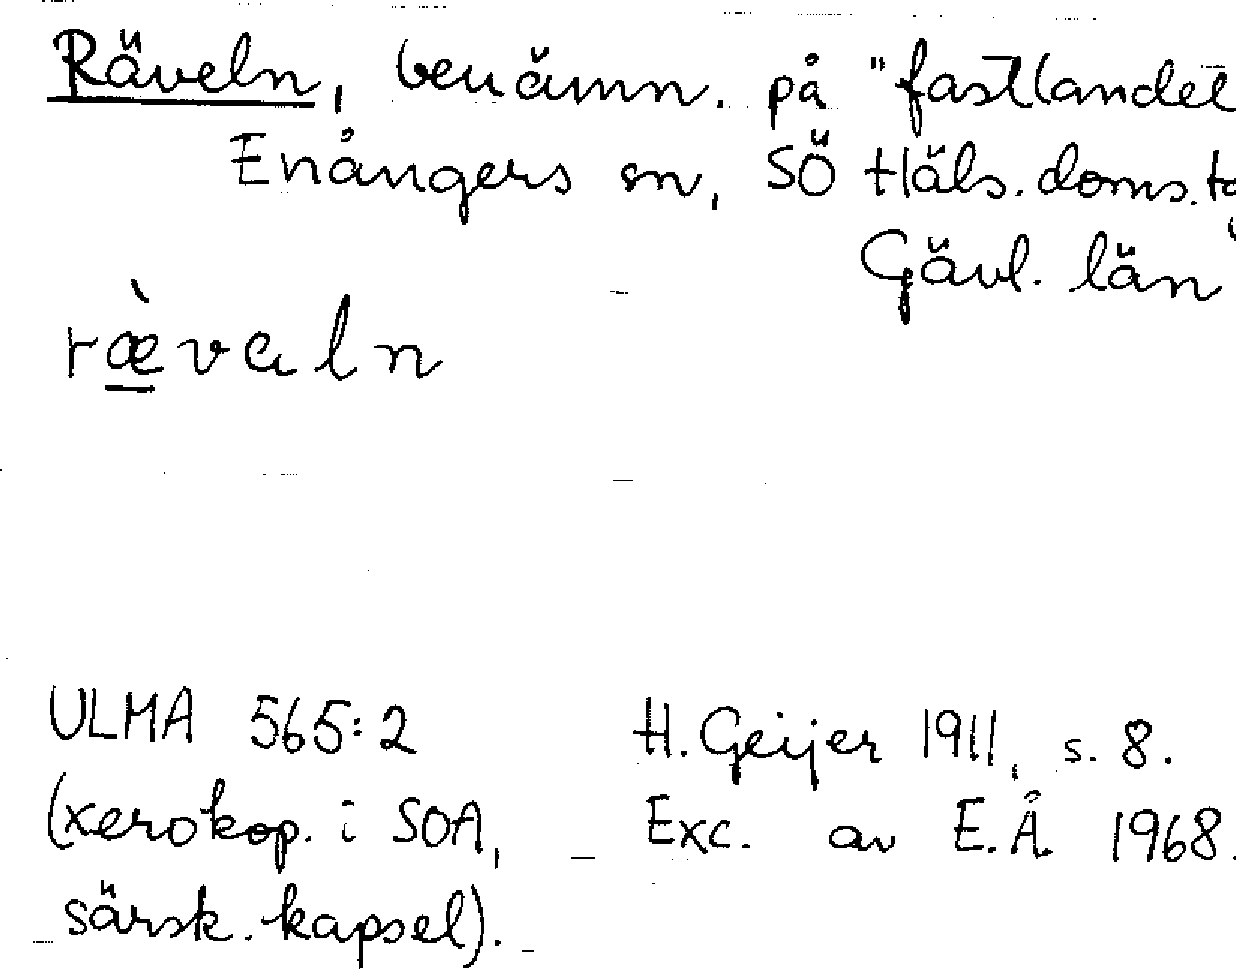 Räveln, benämn. på "fastlandet
Enångers sn, SÖ Häls. doms.
Gävl. län"
ræ̀valn
ULMA 565:2
(xerokop. i SOA,
särsk. kapsel).
H. Geijer 1911, s. 8.
Exc. av E.Å. 1968.